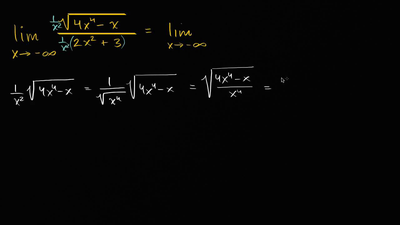 lim x→-∞ (1/x² √(4x⁴-x)) / (1/x² (2x² + 3)) = lim x→-∞
1/x² √(4x⁴-x) = 1/√(x⁴) √(4x⁴-x) = √((4x⁴-x)/x⁴) =